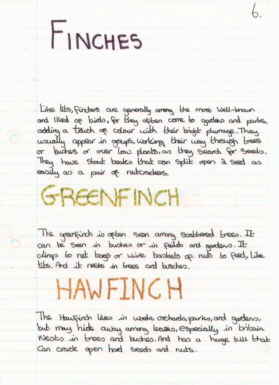 6.
FINCHES
Like tits, finches are generally among the more well-known
and liked of birds, for they often come to gardens and parks,
adding a touch of colour with their bright plumage. They
usually appear in groups, working their way through trees
or bushes or over low plants, as they search for seeds.
They have stout beaks that can split open a seed as
easily as a pair of nutcrackers.
GREENFINCH
The greenfinch is often seen among scattered trees. It
can be seen in bushes or in fields and gardens. It
clings to net bags or wire baskets of nuts to feed, like
tits. And it nests in trees and bushes.
HAWFINCH
The Hawfinch lives in woods orchards, parks, and gardens,
but may hide away among leaves, especially in britain
Nests in trees and bushes. And has a huge bill that
Can crack open hard seeds and nuts.